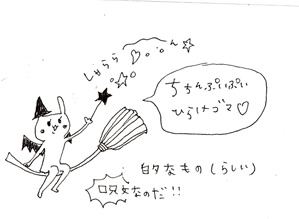 しゅらら
ちちんぷいぷい
ひらけゴマ♡
白タなもの(らしい)
呪文なのだ!!